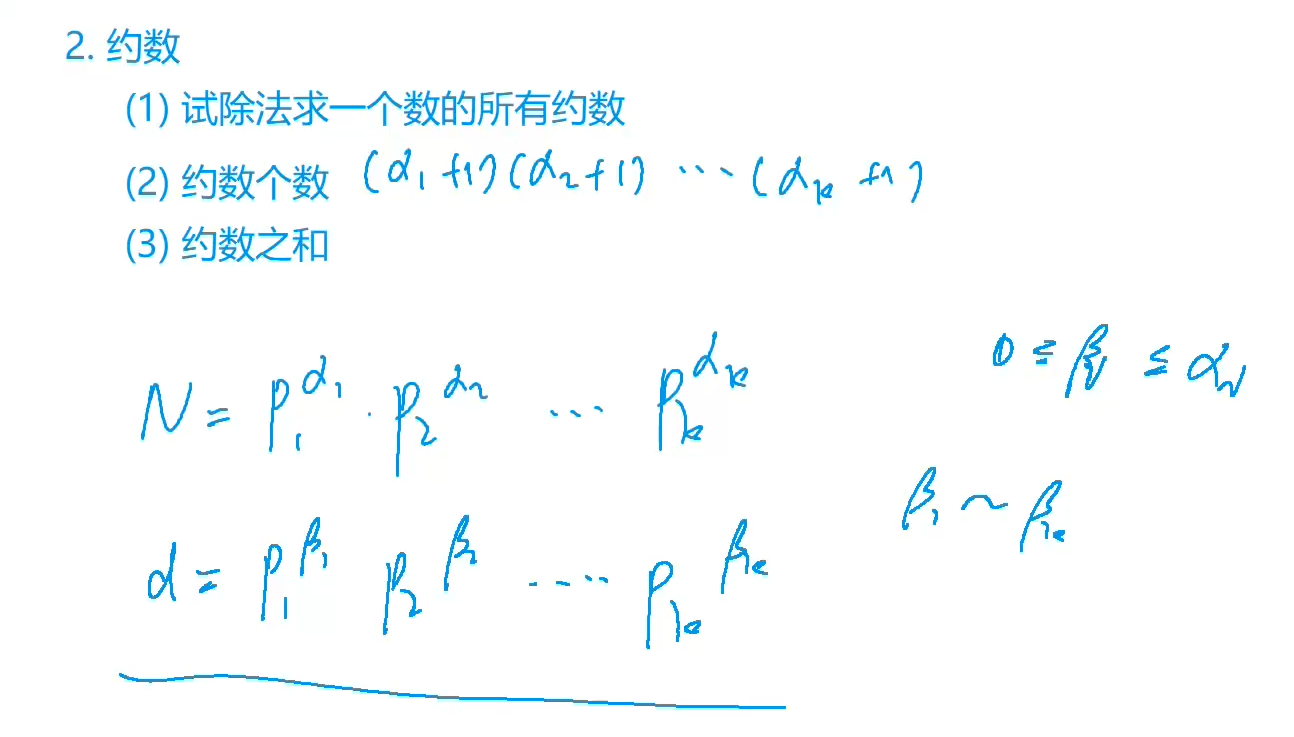 2. 约数
(1) 试除法求一个数的所有约数
(2) 约数个数 (α₁+1)(α₂+1) ⋯ (αₖ+1)
(3) 约数之和
0 ≤ βᵢ ≤ αᵢ
N = p₁^α₁ · p₂^α₂ ⋯ pₖ^αₖ
β₁ ~ βₖ
d = p₁^β₁ p₂^β₂ ⋯⋯ pₖ^βₖ